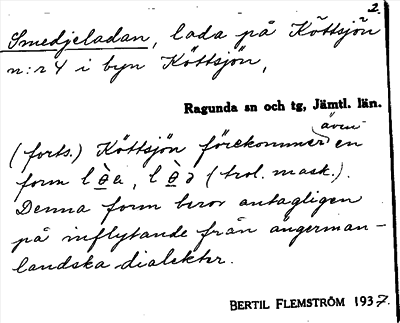 2.
Smedjeladan, lada på Köttsjön
n:r 4 i byn Köttsjön,
Ragunda sn och tg, Jämtl. län.
(forts.) Köttsjön förekommer även en
form (trol. mask.).
Denna form beror antagligen
på inflytande från ångerman-
ländska dialekter.
BERTIL FLEMSTRÖM 1937.